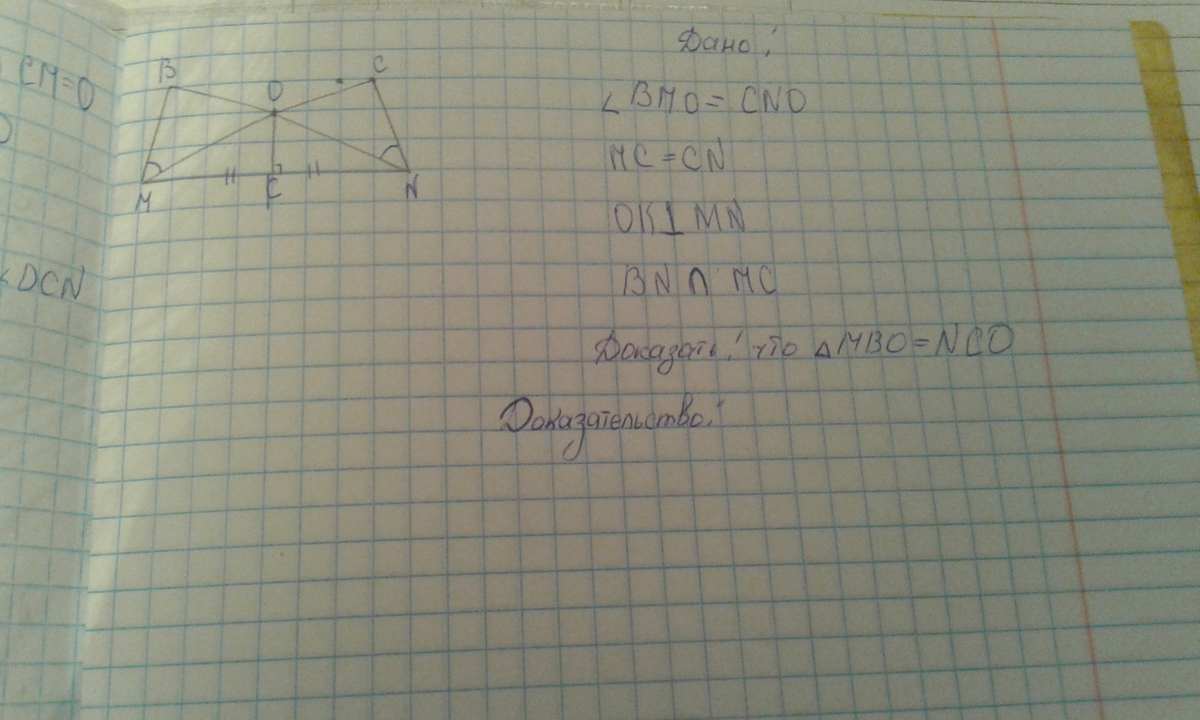 CM=O
<DCN
B
O
C
M
K
N
Дано:
∠BMO = CNO
MC = CN
OK⊥ MN
BN ∩ MC
Доказать: что △MBO=NCO
Доказательство: